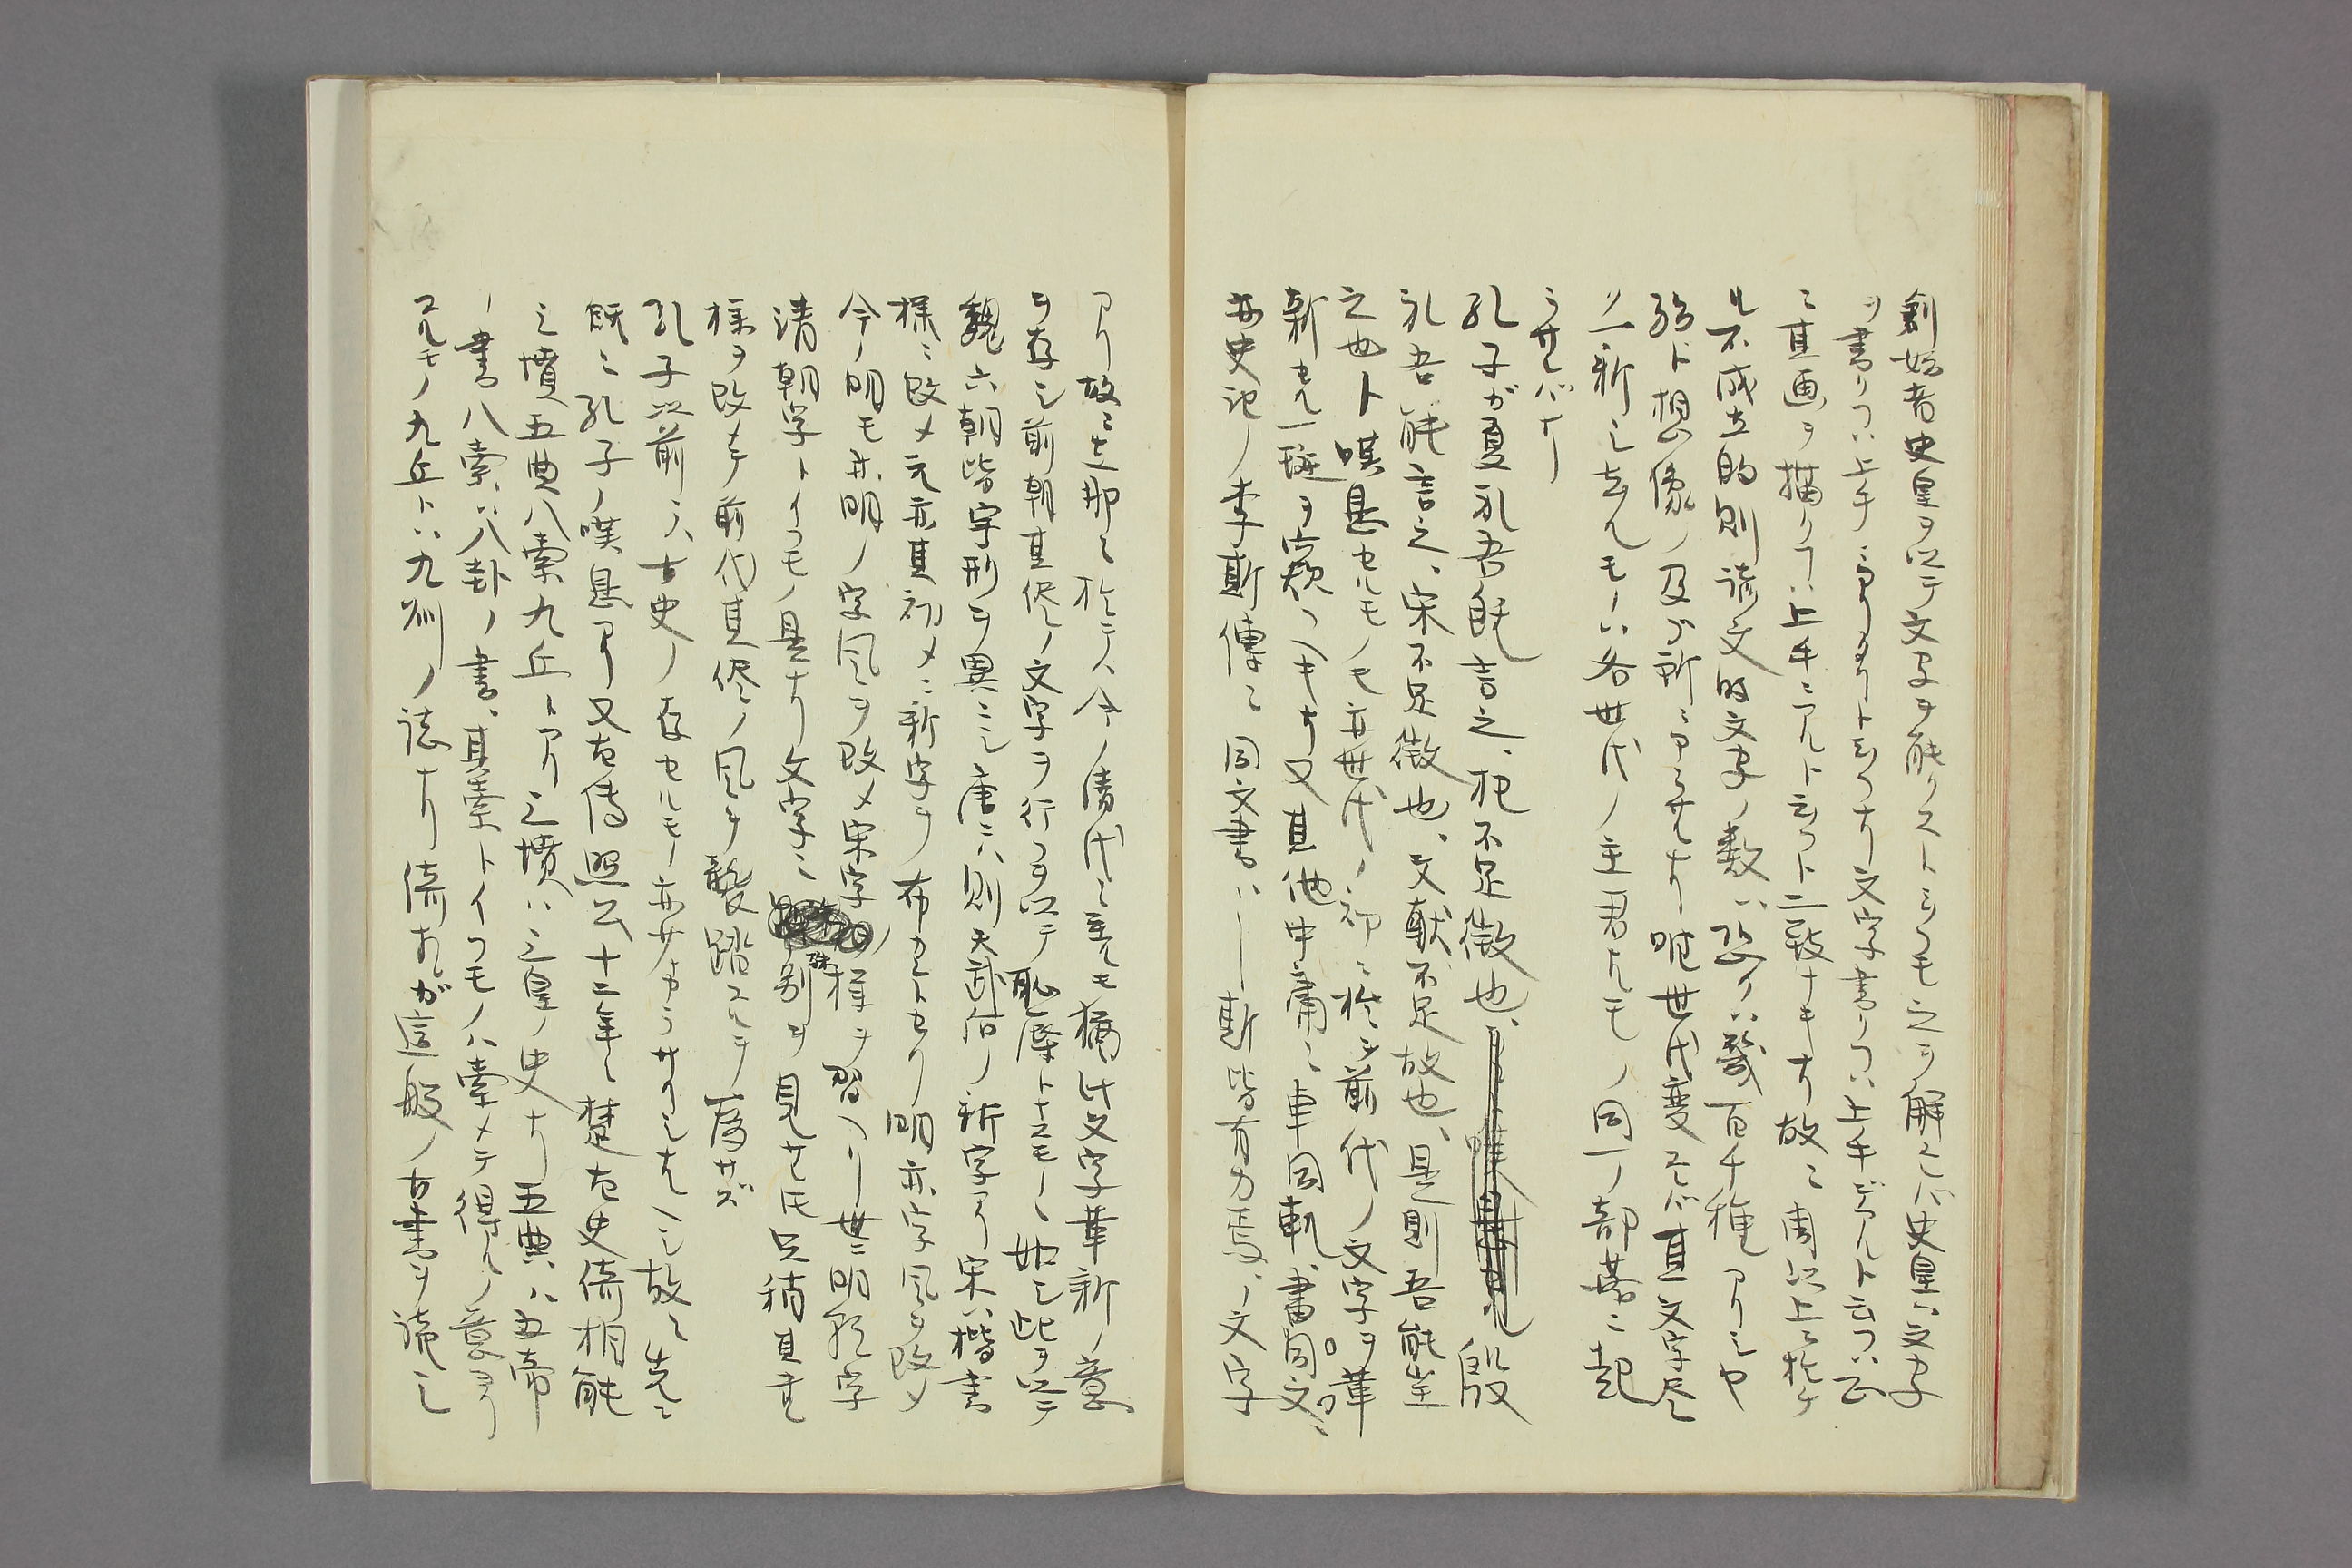 創始者史皇ヲ以テ文字ヲ能クストシフモ之ヲ解スレバ史皇ハ文字
ヲ書クフハ上手ニアリタリト云フナリ文字書クフハ上手デアルト云フハ正
ニ其画ヲ描クフハ上手ニアルト云フト二致ナキナリ故ニ周以上ニ於ケ
ル不成立的則諺文的文字ノ数ハ恐クハ幾百千種アリシヤ
殆ド想像ノ及ブ所ニアラザルナリ唯世代変スレバ其文字尽ク
一新シ去ルモノハ各世代ノ主君ナルモノ同一ノ部落ニ起
ラザレバナリ
孔子ガ夏礼吾能言之、杞不足徴也、殷
礼吾能言之、宋不足徴也、文献不足故也、足則吾能徴
之也ト嘆息セルモノモ亦世代ノ初ニ於ケル前代ノ文字ヲ革
新セル一斑ヲ窺フヘキナリ又其他中庸ニ車同軌、書同文、
亦史記ノ李斯傳ニ同文書ハ―斯皆有力焉、ノ文字
アリ故ニ支那ニ於テハ今ノ清代ニ至ルモ猶此文字革新ノ意
ヲ存シ前朝其侭ノ文字ヲ行フヲ以テ恥辱トナスモノヽ如シ此ヲ以テ
魏六朝皆字形ヲ異ニシ唐ニハ則天武后ノ新字アリ宋ハ楷書
様ニ改メ元亦其初メニ新字ヲ布カントセリ明亦字風ヲ改メ
今ノ明モ亦明ノ字風ヲ改メ宋字様ヲ習ヘリ世ニ明朝字
清朝字トイフモノ是ナリ文字ニ殊別ヲ見ザレ氏只稍其書
様ヲ改メテ前代其侭ノ風ヲ襲踏スルヲ屑サズ
孔子以前ニハ古史ノ存セルモノ亦少カラザリシナルヘシ故ニ先ニ
既ニ孔子ノ嘆息アリ又左傳昭公十二年ニ楚左史倚相能
三墳五典八索九丘トアリ三墳ハ三皇ノ史ナリ五典ハ五帝
ノ書八索ハ八卦ノ書、其索トイフモノハ索メテ得ルノ意ヨリ
スルモノ九丘トハ九州ノ誌ナリ倚相ガ這般ノ古書ヲ読ミ